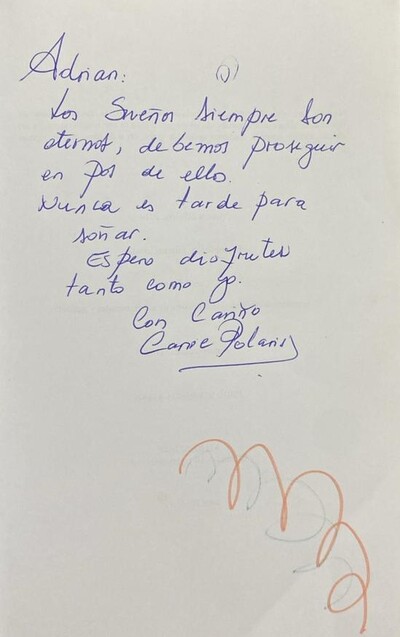 Adrian:
Los Sueños siempre son
eternos, debemos proseguir
en pos de ello.
Nunca es tarde para
soñar.
Espero disfrutes
tanto como yo.
Con Cariño
Polaris